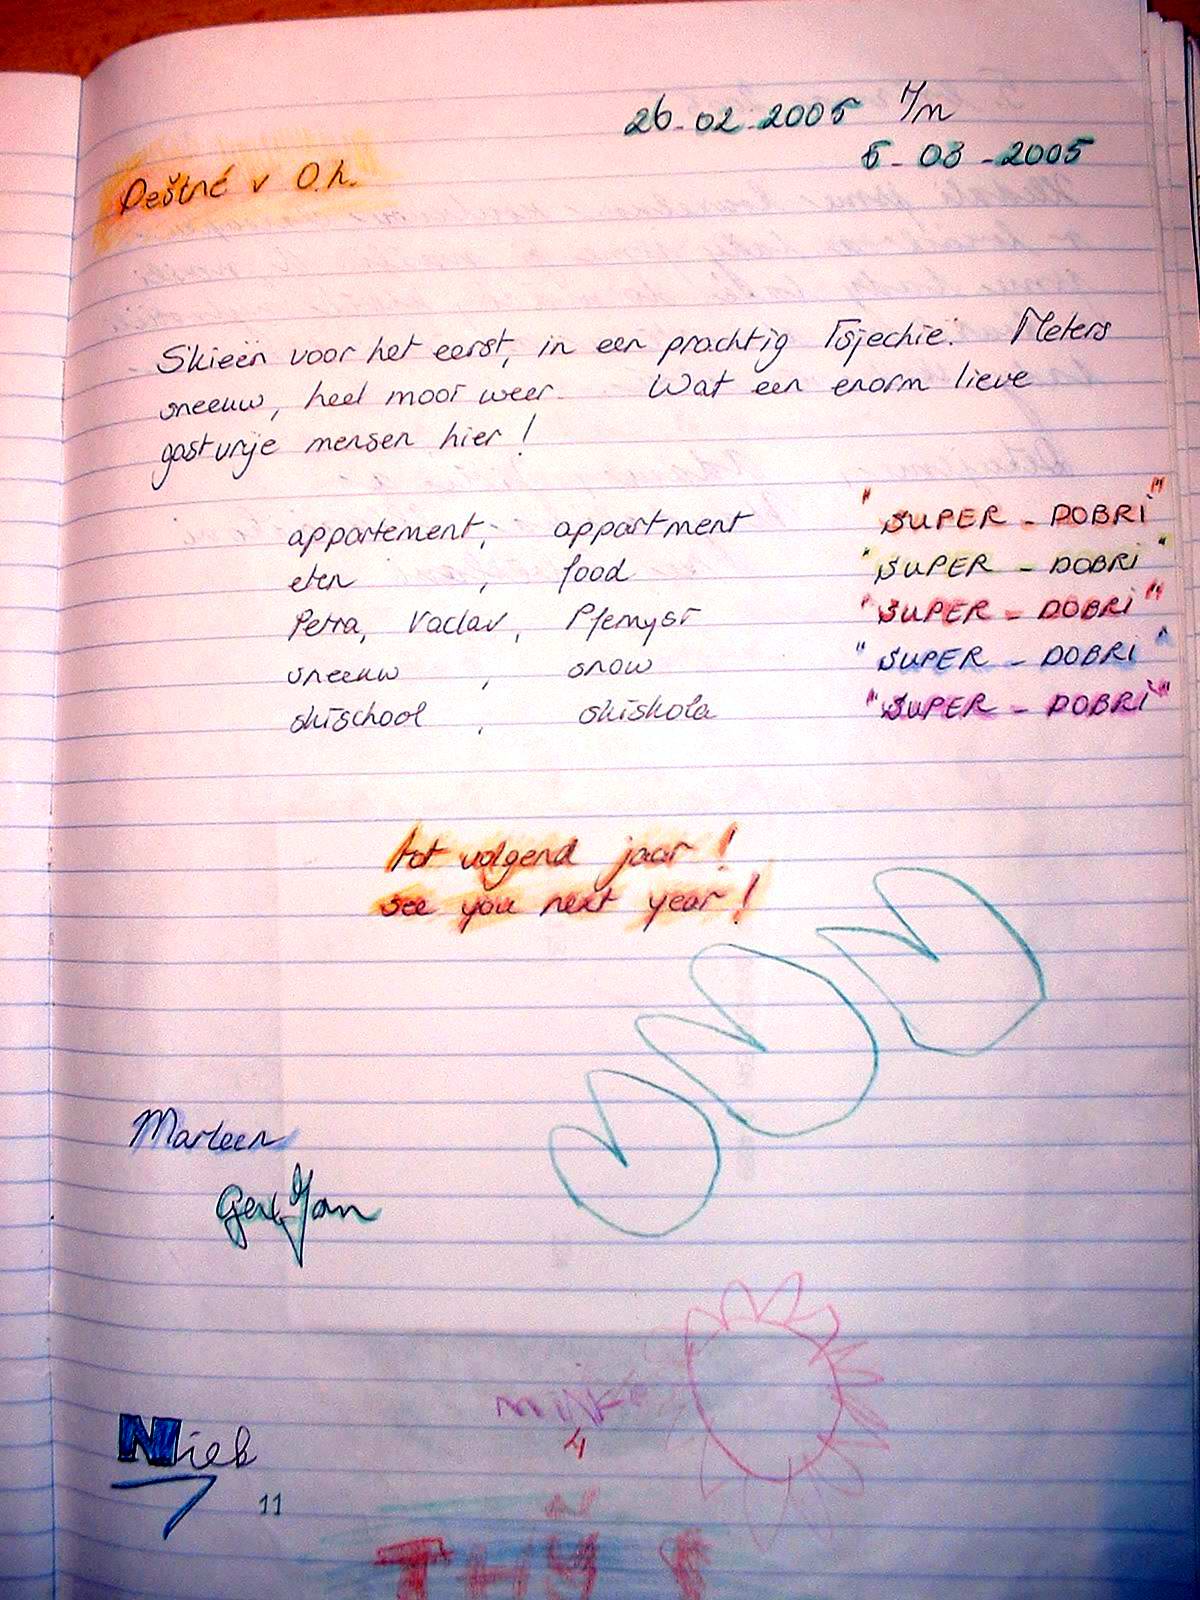 26-02-2005 t/m
5-03-2005
Deštné v O.h.
Skieën voor het eerst, in een prachtig Tsjechie. Meters
sneeuw, heel mooi weer. Wat een enorm lieve
gastvrije mensen hier!
appartement, appartment "SUPER - DOBRI"
eten, food "SUPER - DOBRI"
Petra, Vaclav, "SUPER - DOBRI"
sneeuw, snow "SUPER - DOBRI"
skischool, skiskola "SUPER - DOBRI"
tot volgend jaar!
see you next year!
Marleen
Gert Jan
MINKE
4
Niek
11
THYS